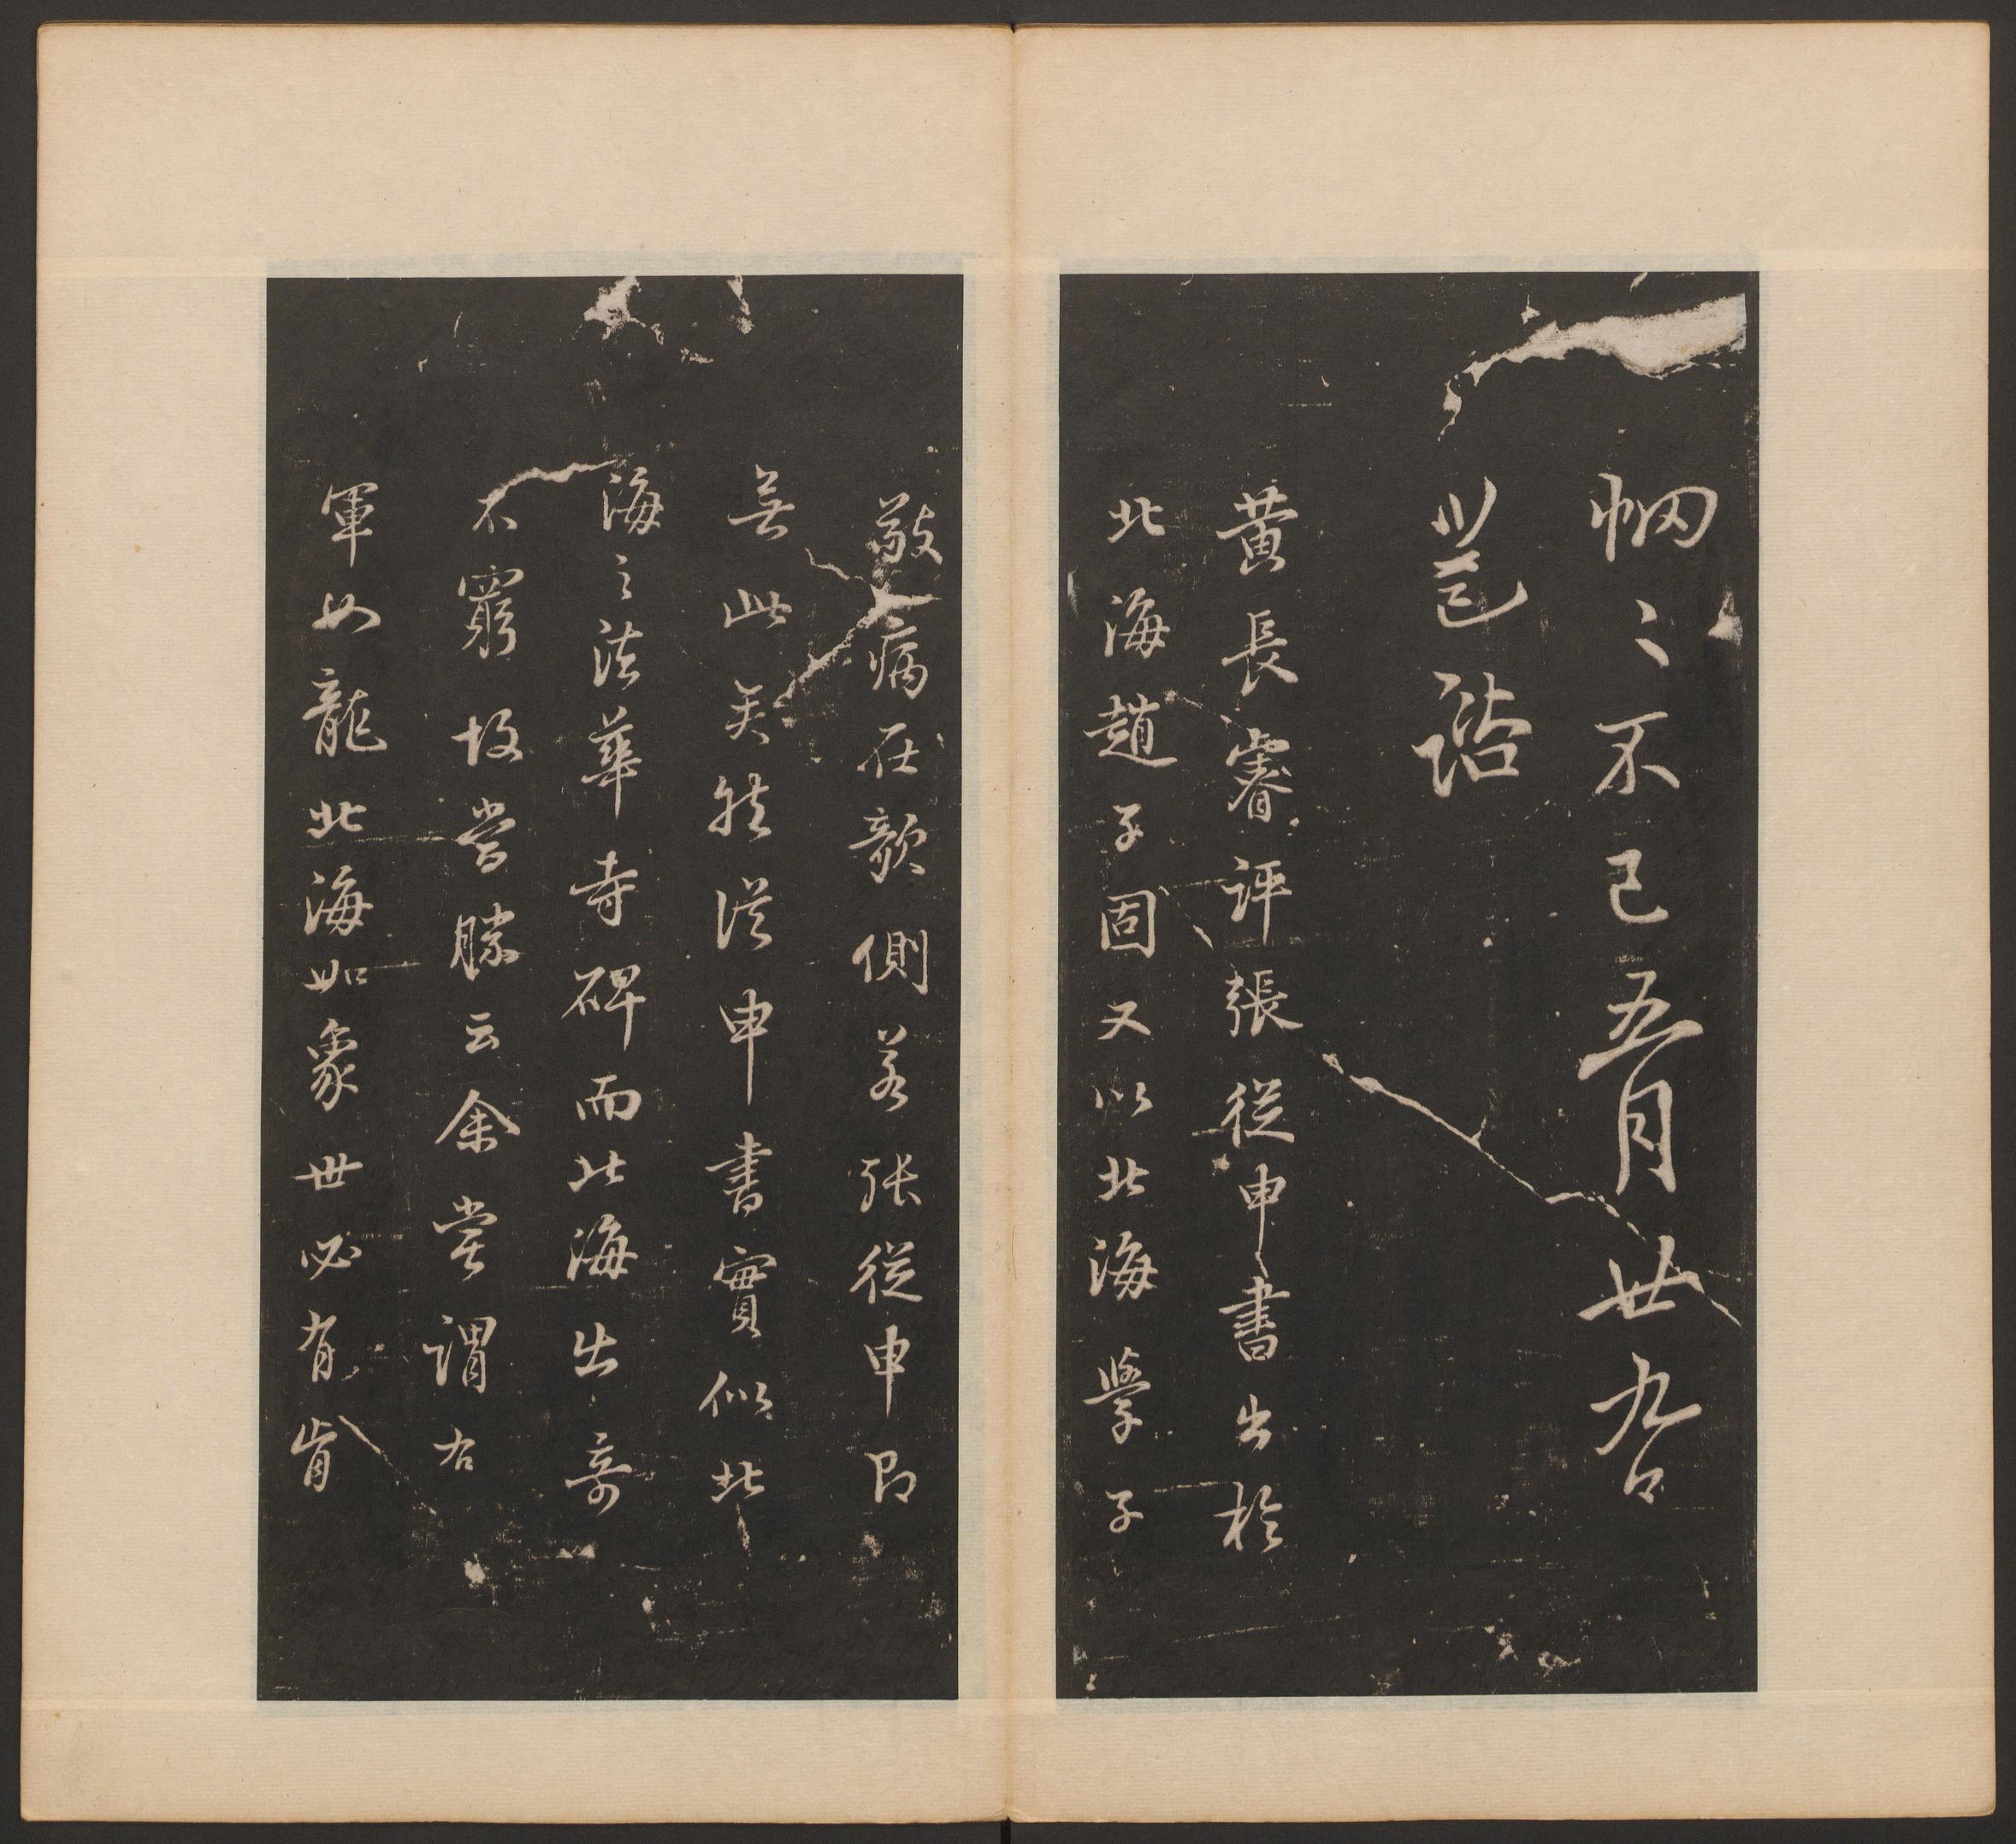 惘〻不已五月廿九日
邕諮
黃長睿評張從申書出於
北海趙子固又以北海學子
敬病在欹側若張從申即
無此矣然從申書實似北
海之法華寺碑而北海出奇
不窮故當勝云余嘗謂右
軍如龍北海如象世必有肯